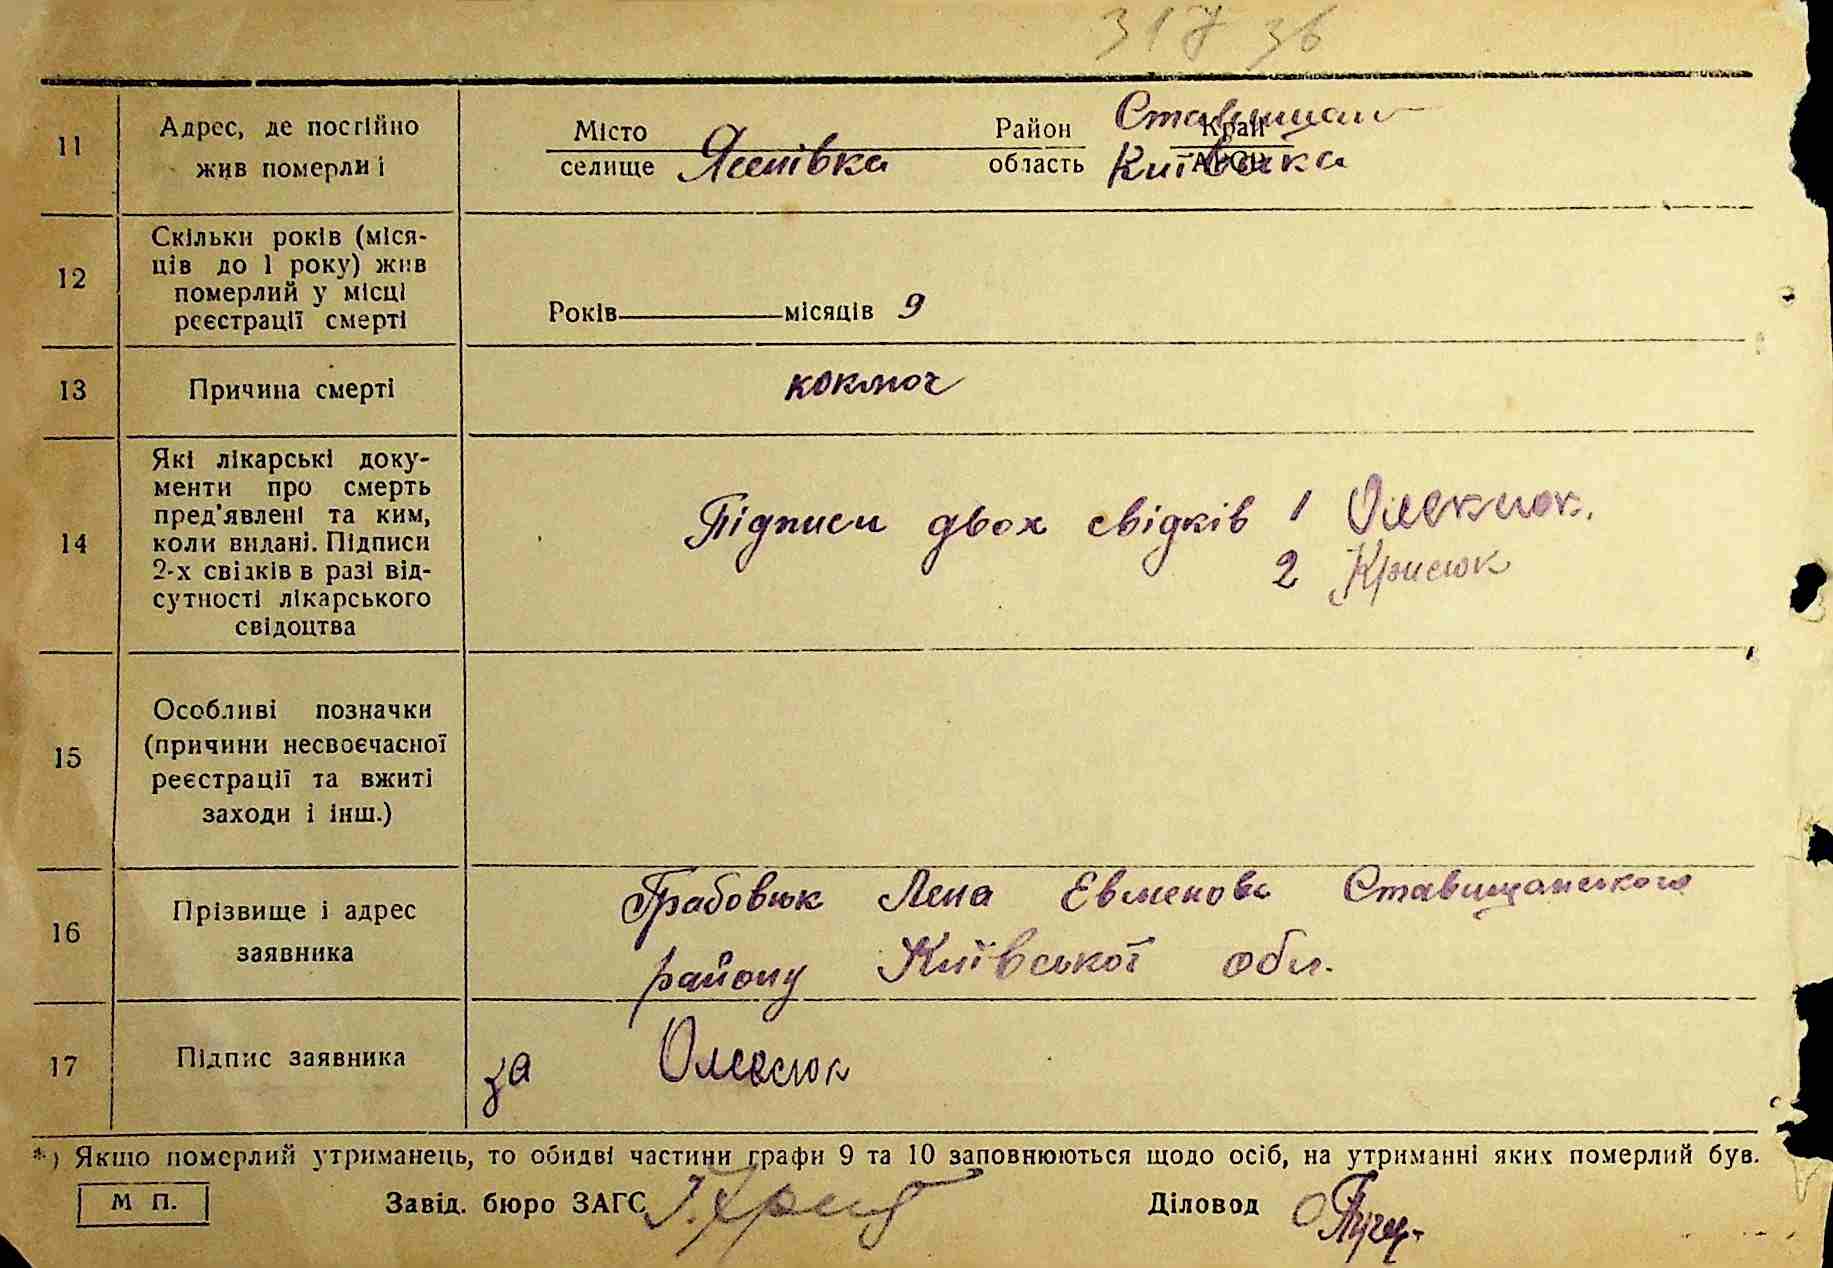 317 36
11
Адрес, де постійно
жив померлиі
Місто
селище
Ясенівка
Район
область
Край
АРСР
Ставищан
Київська
12
Скільки років (міся-
ців до 1 року) жив
померлий у місці
реєстрації смерті
Років місяців 9
13
Причина смерті
коклюш
14
Які лікарські доку-
менти про смерть
пред'явлені та ким,
коли видані. Підписи
2-х свідків в разі від-
сутності лікарського
свідоцтва
Підписи двох свідків 1 Олексюк.
2 Крисюк
15
Особливі позначки
(причини несвоєчасної
реєстрації та вжиті
заходи і інш.)
16
Прізвище і адрес
заявника
Грабовюк Лена Евменова Ставищанського
району Київської обл.
17
Підпис заявника
за Олексюк
*) Якщо померлий утриманець, то обидві частини графи 9 та 10 заповнюються щодо осіб, на утриманні яких померлий був.
М П.
Завід. бюро ЗАГС
Діловод